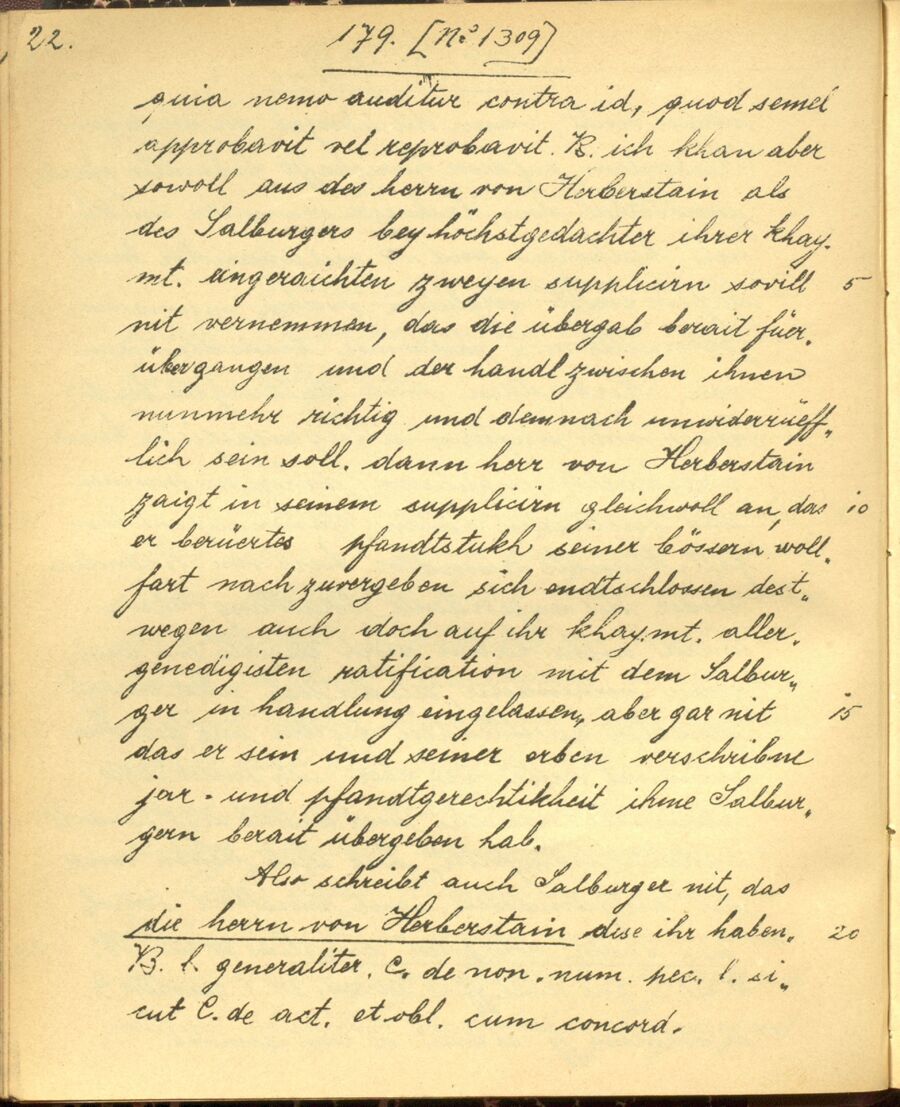 22.
179. [No 1309]
quia nemo auditur contra id, quod semel
approbavit vel reprobavit. B. ich khan aber
sowoll aus des herrn von Herberstain als
des Salburgers bey höchstgedachter ihrer khay.
mt. eingeraichten zweyen supplicirn sovill 5
nit vernemmen, das die übergab berait füer„
übergangen und der handl zwischen ihnen
nunmehr richtig und demnach unwiderrüeff„
lich sein soll. dann herr von Herberstain
zaigt in seinem supplicirn gleichwoll an, das 10
er berüertes pfandtstukh seiner bössern woll„
fart nach zuvergeben sich endtschlossen dest„
wegen auch doch auf ihr khay. mt. aller„
genedigisten ratification mit dem Salbur„
ger in handlung eingelassen, aber gar nit 15
das er sein und seiner erben verschribne
jar- und pfandtgerechtikheit ihme Salbur„
gern berait übergeben hab.
Also schreibt auch Salburger nit, das
die herrn von Herberstain dise ihr haben„ 20
B. l. generaliter. C. de non. num. pec. l. si„
cut C. de act. et obl. cum concord.